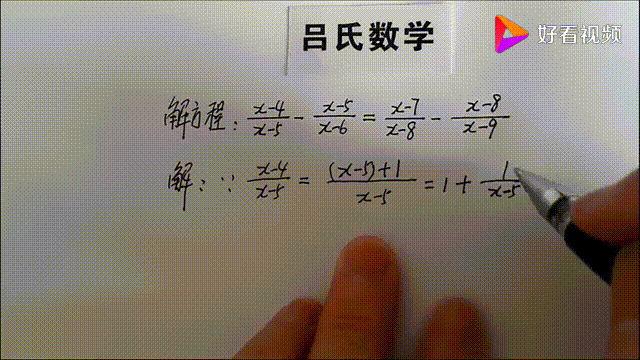 吕氏数学
好看视频
解方程: \frac{x-4}{x-5} - \frac{x-5}{x-6} = \frac{x-7}{x-8} - \frac{x-8}{x-9}
解: ∵ \frac{x-4}{x-5} = \frac{(x-5)+1}{x-5} = 1 + \frac{1}{x-5}